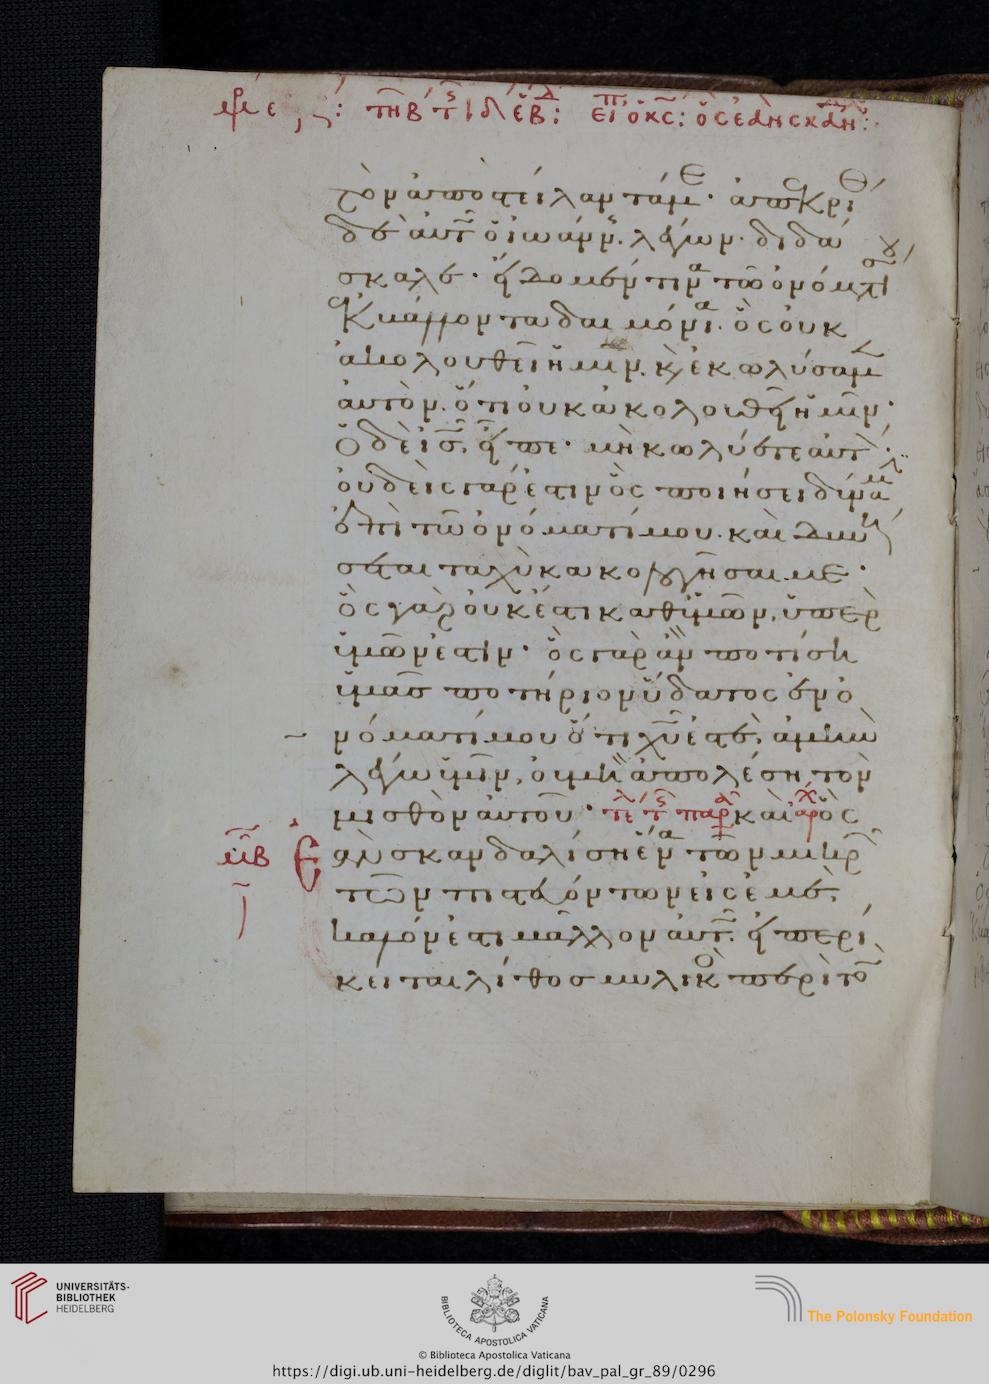 χὸν ἀποστείλαντά με· ἀπεκρίθ
δὲ αὐτ ὁ ἰωάνν· λέγων· διδά
σκαλε· εἴδομέν τινα τῶ ὀνόματί σου
ἐκβάλλοντα δαιμόνια· ὃς οὐκ
ἀκολουθεῖ ἡμῖν· κ ἐκωλύσαμ
αὐτὸν· ὅτι οὐκ ἀκολουθεῖ ἡμῖν·
Ὁ δὲ ις εἶπε· μὴ κωλύετε αὐτ·
οὐδεὶς γάρ ἐστιν ὃς ποιήσει δύναμ
ἐπὶ τῶ ὀνόματί μου· καὶ δυνή
σεται ταχὺ κακολογῆσαι με·
ὃς γὰρ οὐκ ἔστι καθ ἡμῶν, ὑπὲρ
ἡμῶν ἐστιν· ὃς γὰρ ἂν ποτίση
ὑμᾶς ποτήριον ὕδατος ἐν ὀ
νόματί μου ὅτι χυ ἐστέ, ἀμὴν
λέγω ὑμῖν, οὐ μὴ ἀπολέση τὸν
μισθὸν αὐτοῦ· καὶ ὃς
Ἐὰν σκανδαλίση ἕνα τῶν μικρ
τῶν πιστευόντων εἰς ἐμέ,
καλόν ἐστι μᾶλλον αὐτ· εἰ περί
κειται λίθος μυλικὸ περὶ τὸ
UNIVERSITÄTS-
BIBLIOTHEK
HEIDELBERG
BIBLIOTECA APOSTOLICA VATICANA
The Polonsky Foundation
© Biblioteca Apostolica Vaticana
https://digi.ub.uni-heidelberg.de/diglit/bav_pal_gr_89/0296